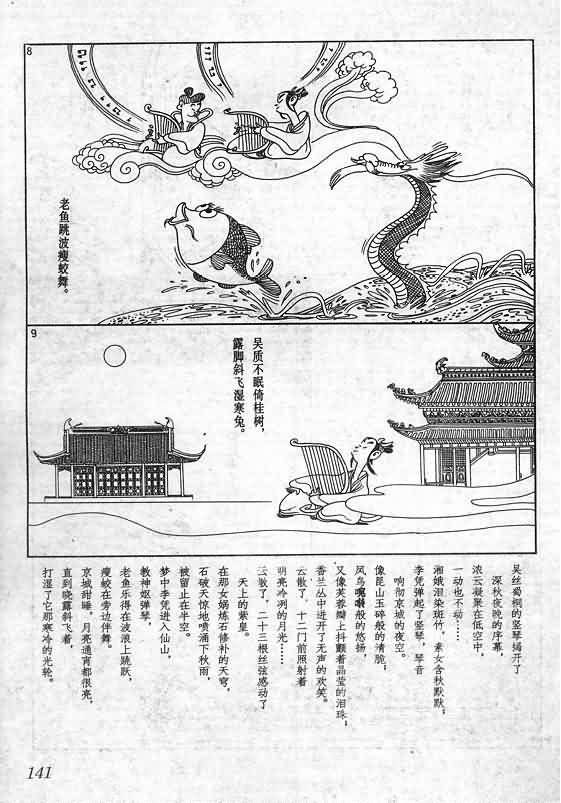 8
老鱼跳波瘦蛟舞。
9
吴质不眠倚桂树，
露脚斜飞湿寒兔。
吴丝蜀桐的竖琴揭开了
深秋夜晚的序幕，
浓云凝聚在低空中，
一动也不动……
湘娥泪染斑竹，素女含秋默默；
李凭弹起了竖琴，琴音
响彻京城的夜空。
像昆山玉碎般的清脆，
凤鸟般的悠扬，
又像芙蓉瓣上抖颤着晶莹的泪珠；
香兰丛中迸开了无声的欢笑。
云散了，十二门前照射着
明亮冷冽的月光……
云散了，二十三根丝弦感动了
天上的紫皇。
在那女娲炼石修补的天穹，
石破天惊地喷涌下秋雨，
被留止在半空。
梦中李凭进入仙山，
教神妪弹琴，
老鱼乐得在波浪上跳跃，
瘦蛟在旁边伴舞。
京城甜睡，月亮通宵都很亮，
直到晓露斜飞着，
打湿了它那寒冷的光轮。
141